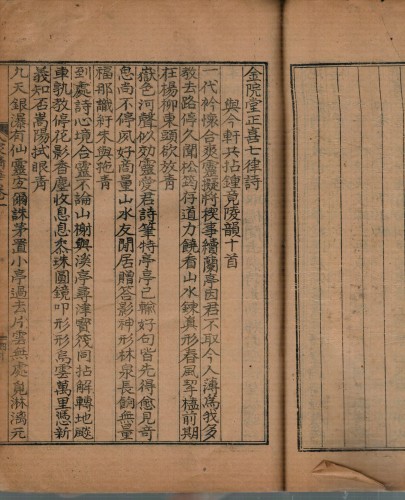 金院堂正喜七律詩
與今軒共拈鍾竟陵韻十首
一代衿懷合爽靈擬將稧事續蘭亭因君不取今人薄為我多
教去路停久聞松筠存道力飽看山水鍊真形春風挈榼前期
在楊柳東頭欲放青
嶽色河聲似効靈受君詩筆特亭亭已輸好句皆先得愈見奇
息尚不停風好商量山水友閒居贈答影神形林泉長餉無量
福那識紆朱與拖青
到處詩心境合靈不論山榭與溪亭尋津寶筏同拈解轉地颷
車孰教停花影香塵收息息黍珠圓鏡叩形形烏雲萬里憑新
義知否嵩陽拭眼青
九天銀瀑有仙靈宜爾誅茅置小亭過去片雲無處覓淋漓元